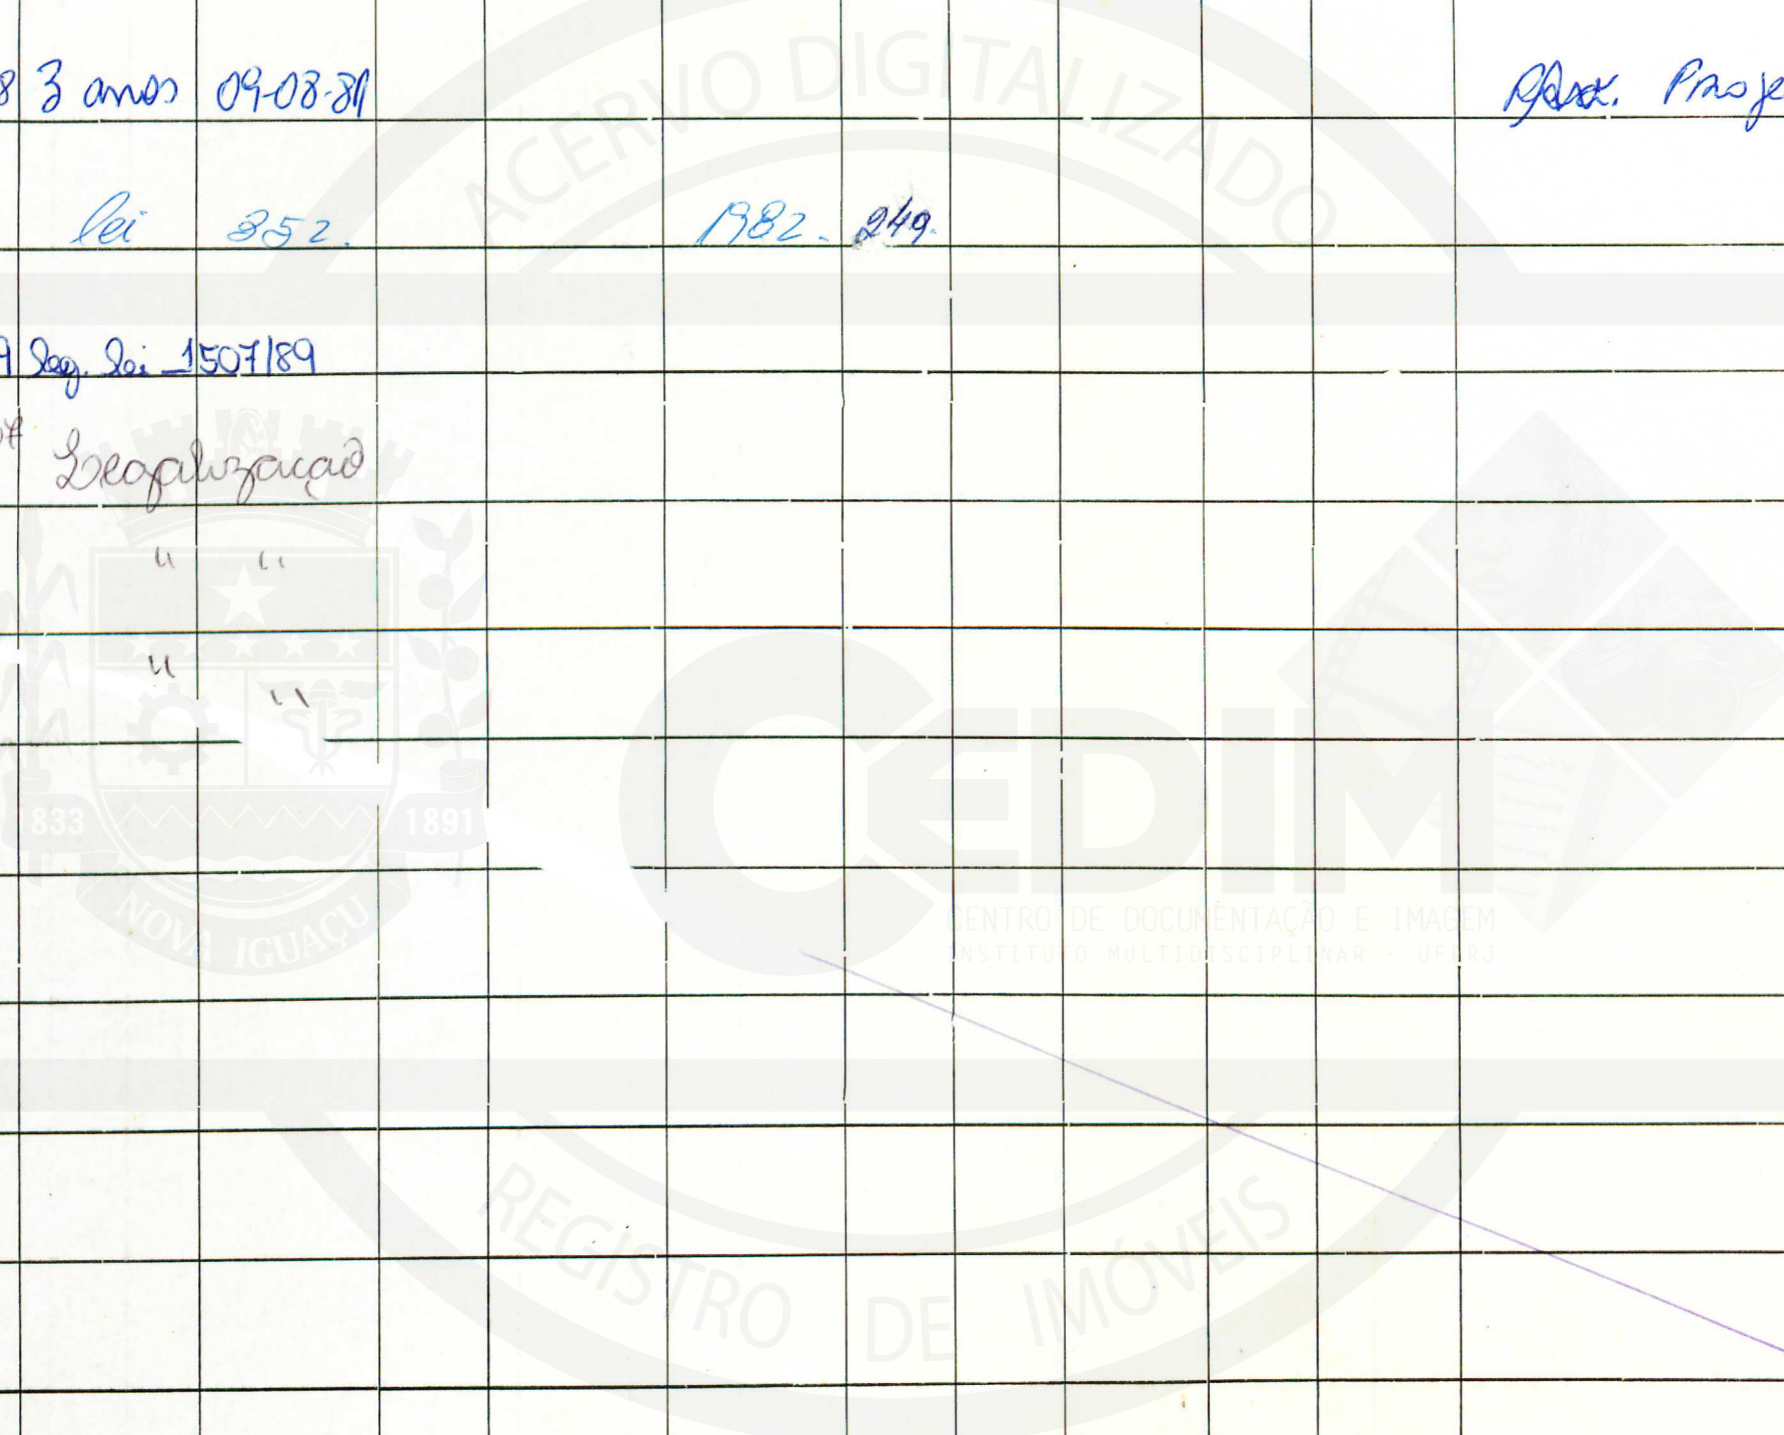 8 3 anos 09-03-81 Proje
lei 352. 1982. 249.
9 Seg. Lei 1507/89
07 Legalização
" "
"
"
ACERVO DIGITALIZADO
1833 1891
NOVA IGUAÇU
CEDIM
CENTRO DE DOCUMENTAÇÃO E IMAGEM
INSTITUTO MULTIDISCIPLINAR - UFRRJ
REGISTRO DE IMÓVEIS